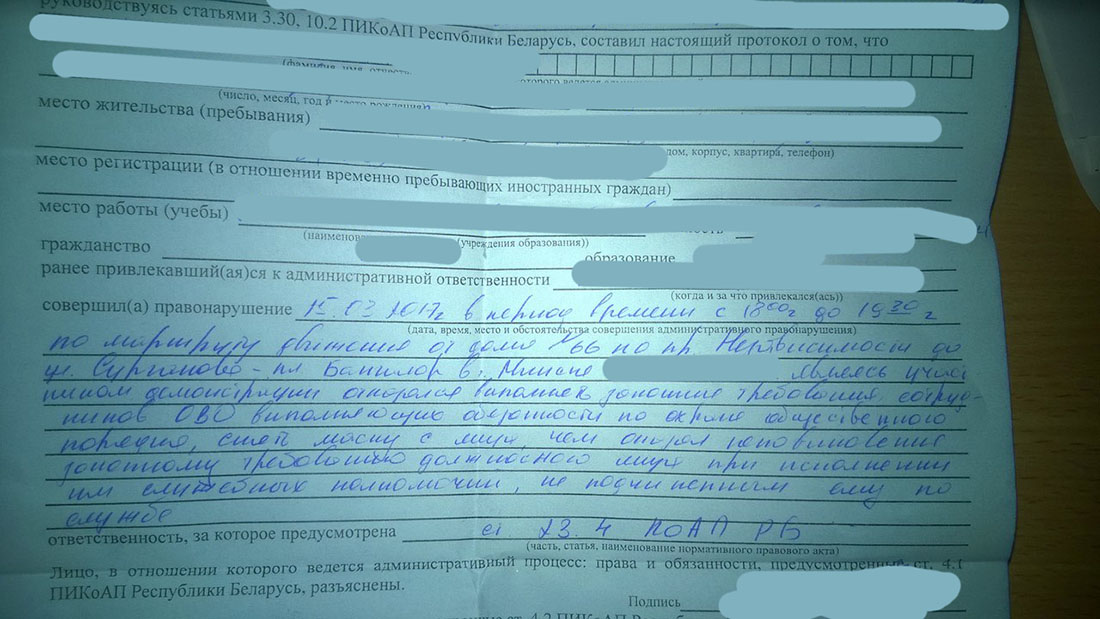 руководствуясь статьями 3.30, 10.2 ПИКоАП Республики Беларусь, составил настоящий протокол о том, что
(фамилия, имя, отчество
которого ведется
(число, месяц, год и место рождения)
место жительства (пребывания)
дом, корпус, квартира, телефон)
место регистрации (в отношении временно пребывающих иностранных граждан)
место работы (учебы)
(учреждения образования))
гражданство образование
ранее привлекавший(ая)ся к административной ответственности
(когда и за что привлекался(ась))
совершил(а) правонарушение 15.03.2017г в период времени с 18 00г до 19 30 г
(дата, время, место и обстоятельства совершения административного правонарушения)
по маршруту движения от дома №66 по пр. Независимости до
ул. Сурганово - пл. Бангалор в г. Минске являясь участ
ником демонстрации отказался выполнять законные требования сотруд-
ников ОВО выполняющих обязанности по охране общественного
порядка, снять маску с лица, чем оказал неповиновение
законному требованию должносного лица при исполнении
им служебных полномочий, не подчиненным ему по
службе
ответственность, за которое предусмотрена ст 23.4 КоАП РБ
(часть, статья, наименование нормативного правового акта)
Лицо, в отношении которого ведется административный процесс: права и обязанности, предусмотренные ст. 4.1
ПИКоАП Республики Беларусь, разъяснены.
Подпись
ст. 4.2 ПИКоАП Республики